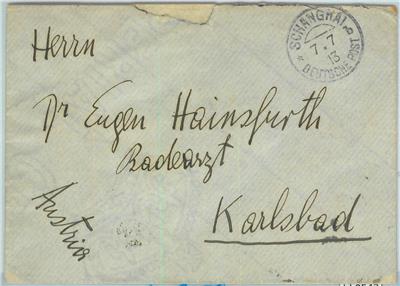 Herrn
Dr Eugen Hainsfurth
Badearzt
Karlsbad
Austria
SCHANGHAI
7.7
13
DEUTSCHE POST